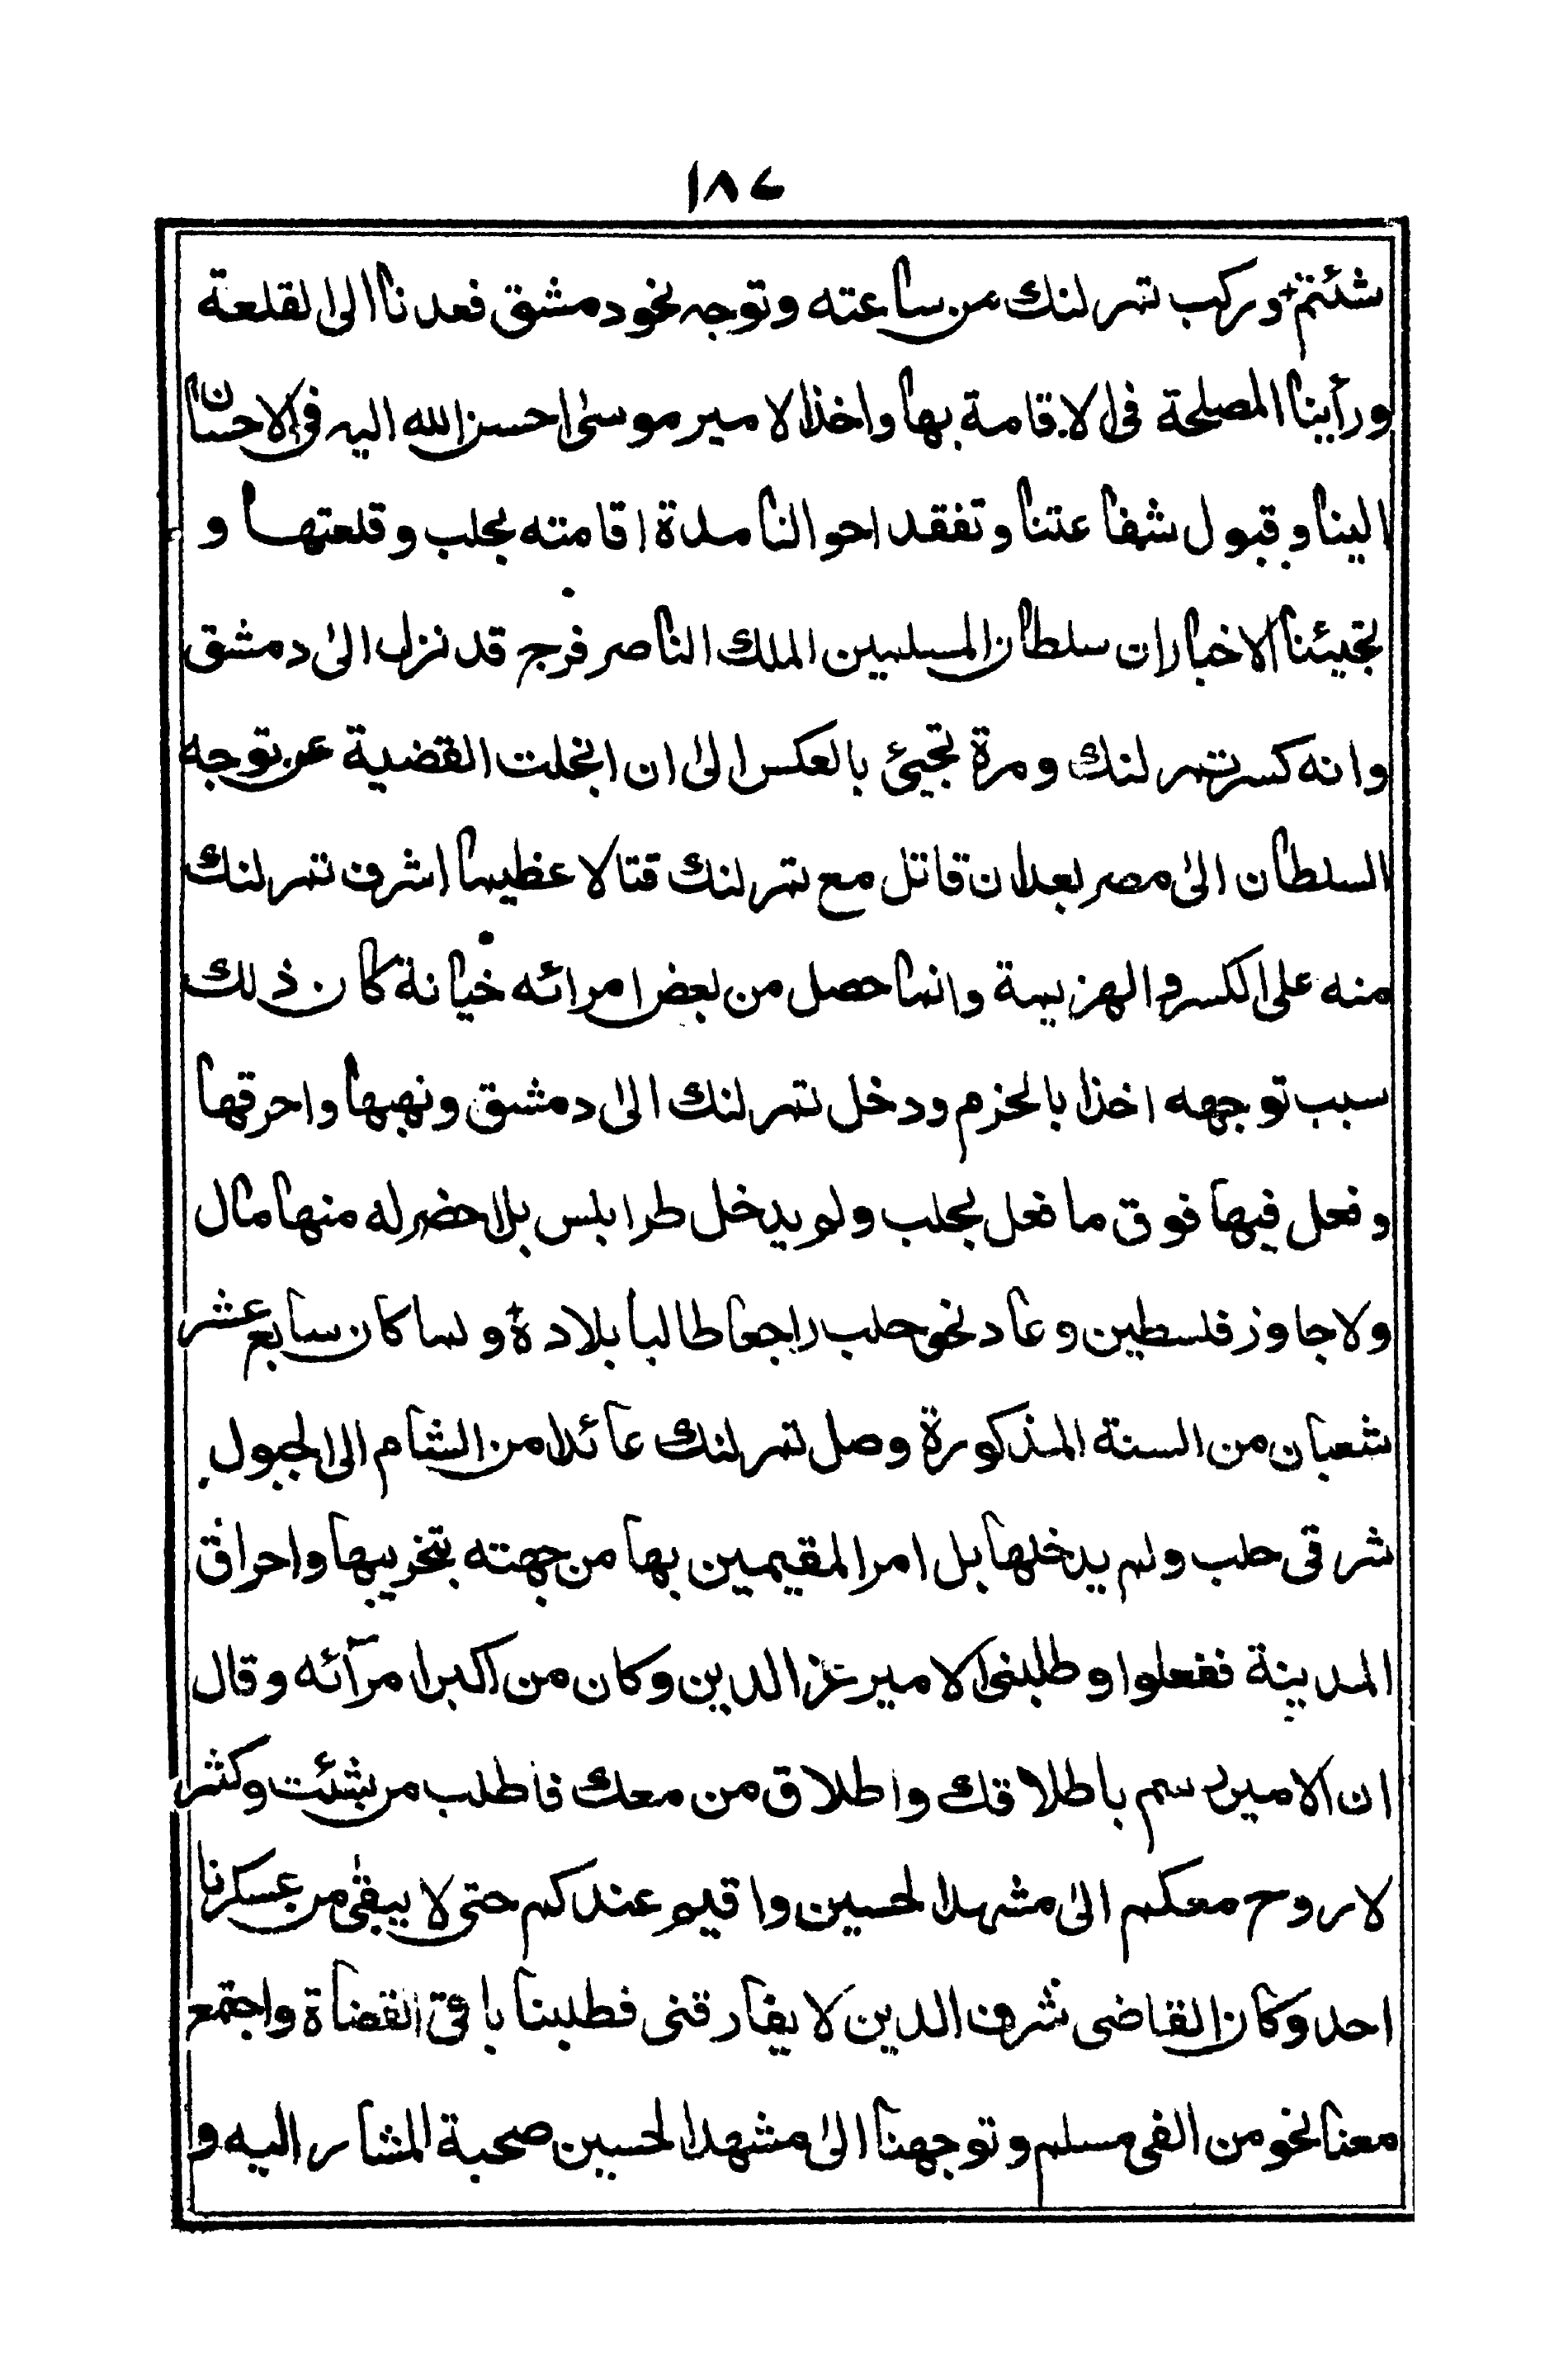 ١٨٧
شئتم وركب تمرلنك من ساعته وتوجه نحو دمشق فعدنا الى القلعة
ورأينا المصلحة فى الاقامة بها واخذ الامير موسى احسن الله اليه فى الاحسان
الينا وقبول شفاعتنا وتفقد احوالنا مدة اقامته بحلب وقلعتها و
تجيئنا الاخبار ان سلطان المسلمين الملك الناصر فرج قد نزل الى دمشق
وانه كسر تمرلنك ومرة تجيئ بالعكس الى ان انجلت القضية عن توجه
السلطان الى مصر بعد ان قاتل مع تمرلنك قتالا عظيما اشرف تمرلنك
منه على الكسر والهزيمة وانما حصل من بعض امرائه خيانة كان ذلك
سبب توجهه اخذا بالحزم ودخل تمرلنك الى دمشق ونهبها واحرقها
وفعل فيها فوق ما فعل بحلب ولم يدخل طرابلس بل احضر له منها مال
ولا جاوز فلسطين وعاد نحو حلب راجعا طالبا بلاده ولما كان سابع عشر
شعبان من السنة المذكورة وصل تمرلنك عائدا من الشام الى الجبول
شرقى حلب ولم يدخلها بل امر المقيمين بها من جهته بتخريبها واحراق
المدينة ففعلوا وطلبنى الامير عز الدين وكان من اكبر امرآئه وقال
ان الامير رسم باطلاقك واطلاق من معك فاطلب من شئت وكثر
لاروح معكم الى مشهد الحسين واقيم عندكم حتى لا يبقى من عسكرنا
احد وكان القاضى شرف الدين لا يفارقنى فطلبنا باقى القضاة واجتمع
معنا نحو من الفى مسلم وتوجهنا الى مشهد الحسين صحبة المشار اليه و